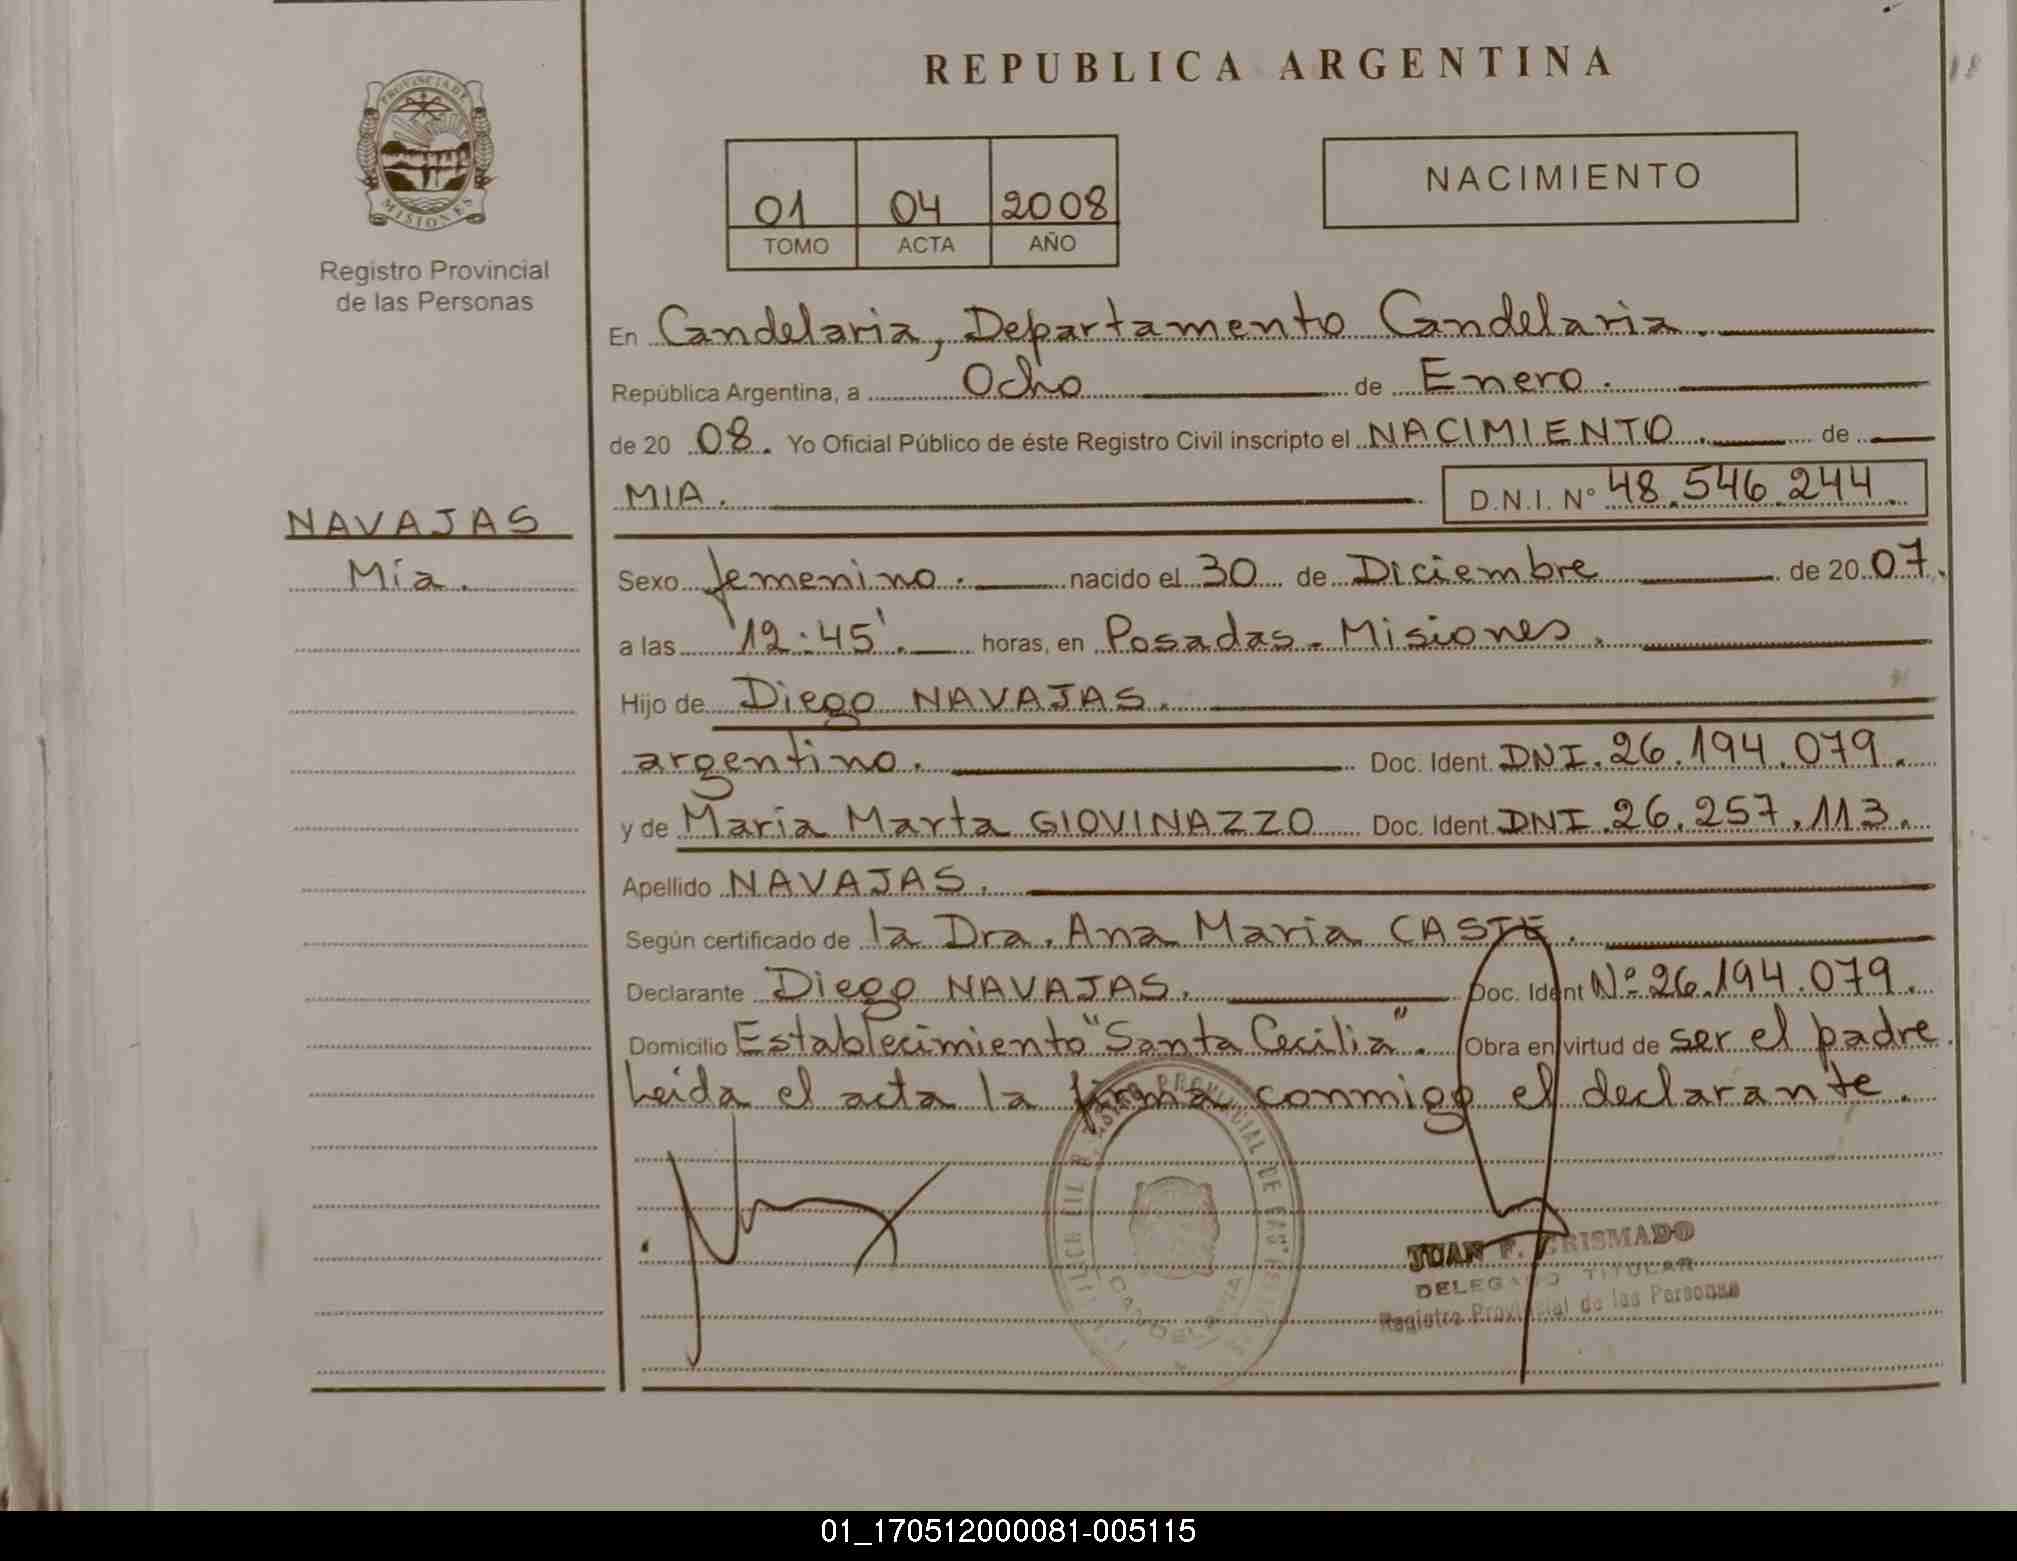 REPUBLICA ARGENTINA
PROVINCIA DE
MISIONES
Registro Provincial
de las Personas
01 04 2008
TOMO ACTA AÑO
NACIMIENTO
En Candelaria, Departamento Candelaria.
República Argentina, a Ocho de Enero.
de 20 08. Yo Oficial Público de éste Registro Civil inscripto el NACIMIENTO. de
MIA. D.N.I. N° 48.546.244.
NAVAJAS
Mía.
Sexo femenino. nacido el 30 de Diciembre de 20 07.
a las 12:45'. horas, en Posadas - Misiones.
Hijo de Diego NAVAJAS.
argentino. Doc. Ident. DNI. 26.194.079.
y de Maria Marta GIOVINAZZO Doc. Ident. DNI 26.257.113.
Apellido NAVAJAS.
Según certificado de la Dra. Ana Maria CASTE.
Declarante Diego NAVAJAS. Doc. Ident Nº 26.194.079.
Domicilio Establecimiento "Santa Cecilia". Obra en virtud de ser el padre.
Leida el acta la firma conmigo el declarante.
PROVINCIAL DE LAS
CANDELARIA
JUAN F. CRISMADO
DELEGADO TITULAR
Registro Provincial de las Personas
01_170512000081-005115